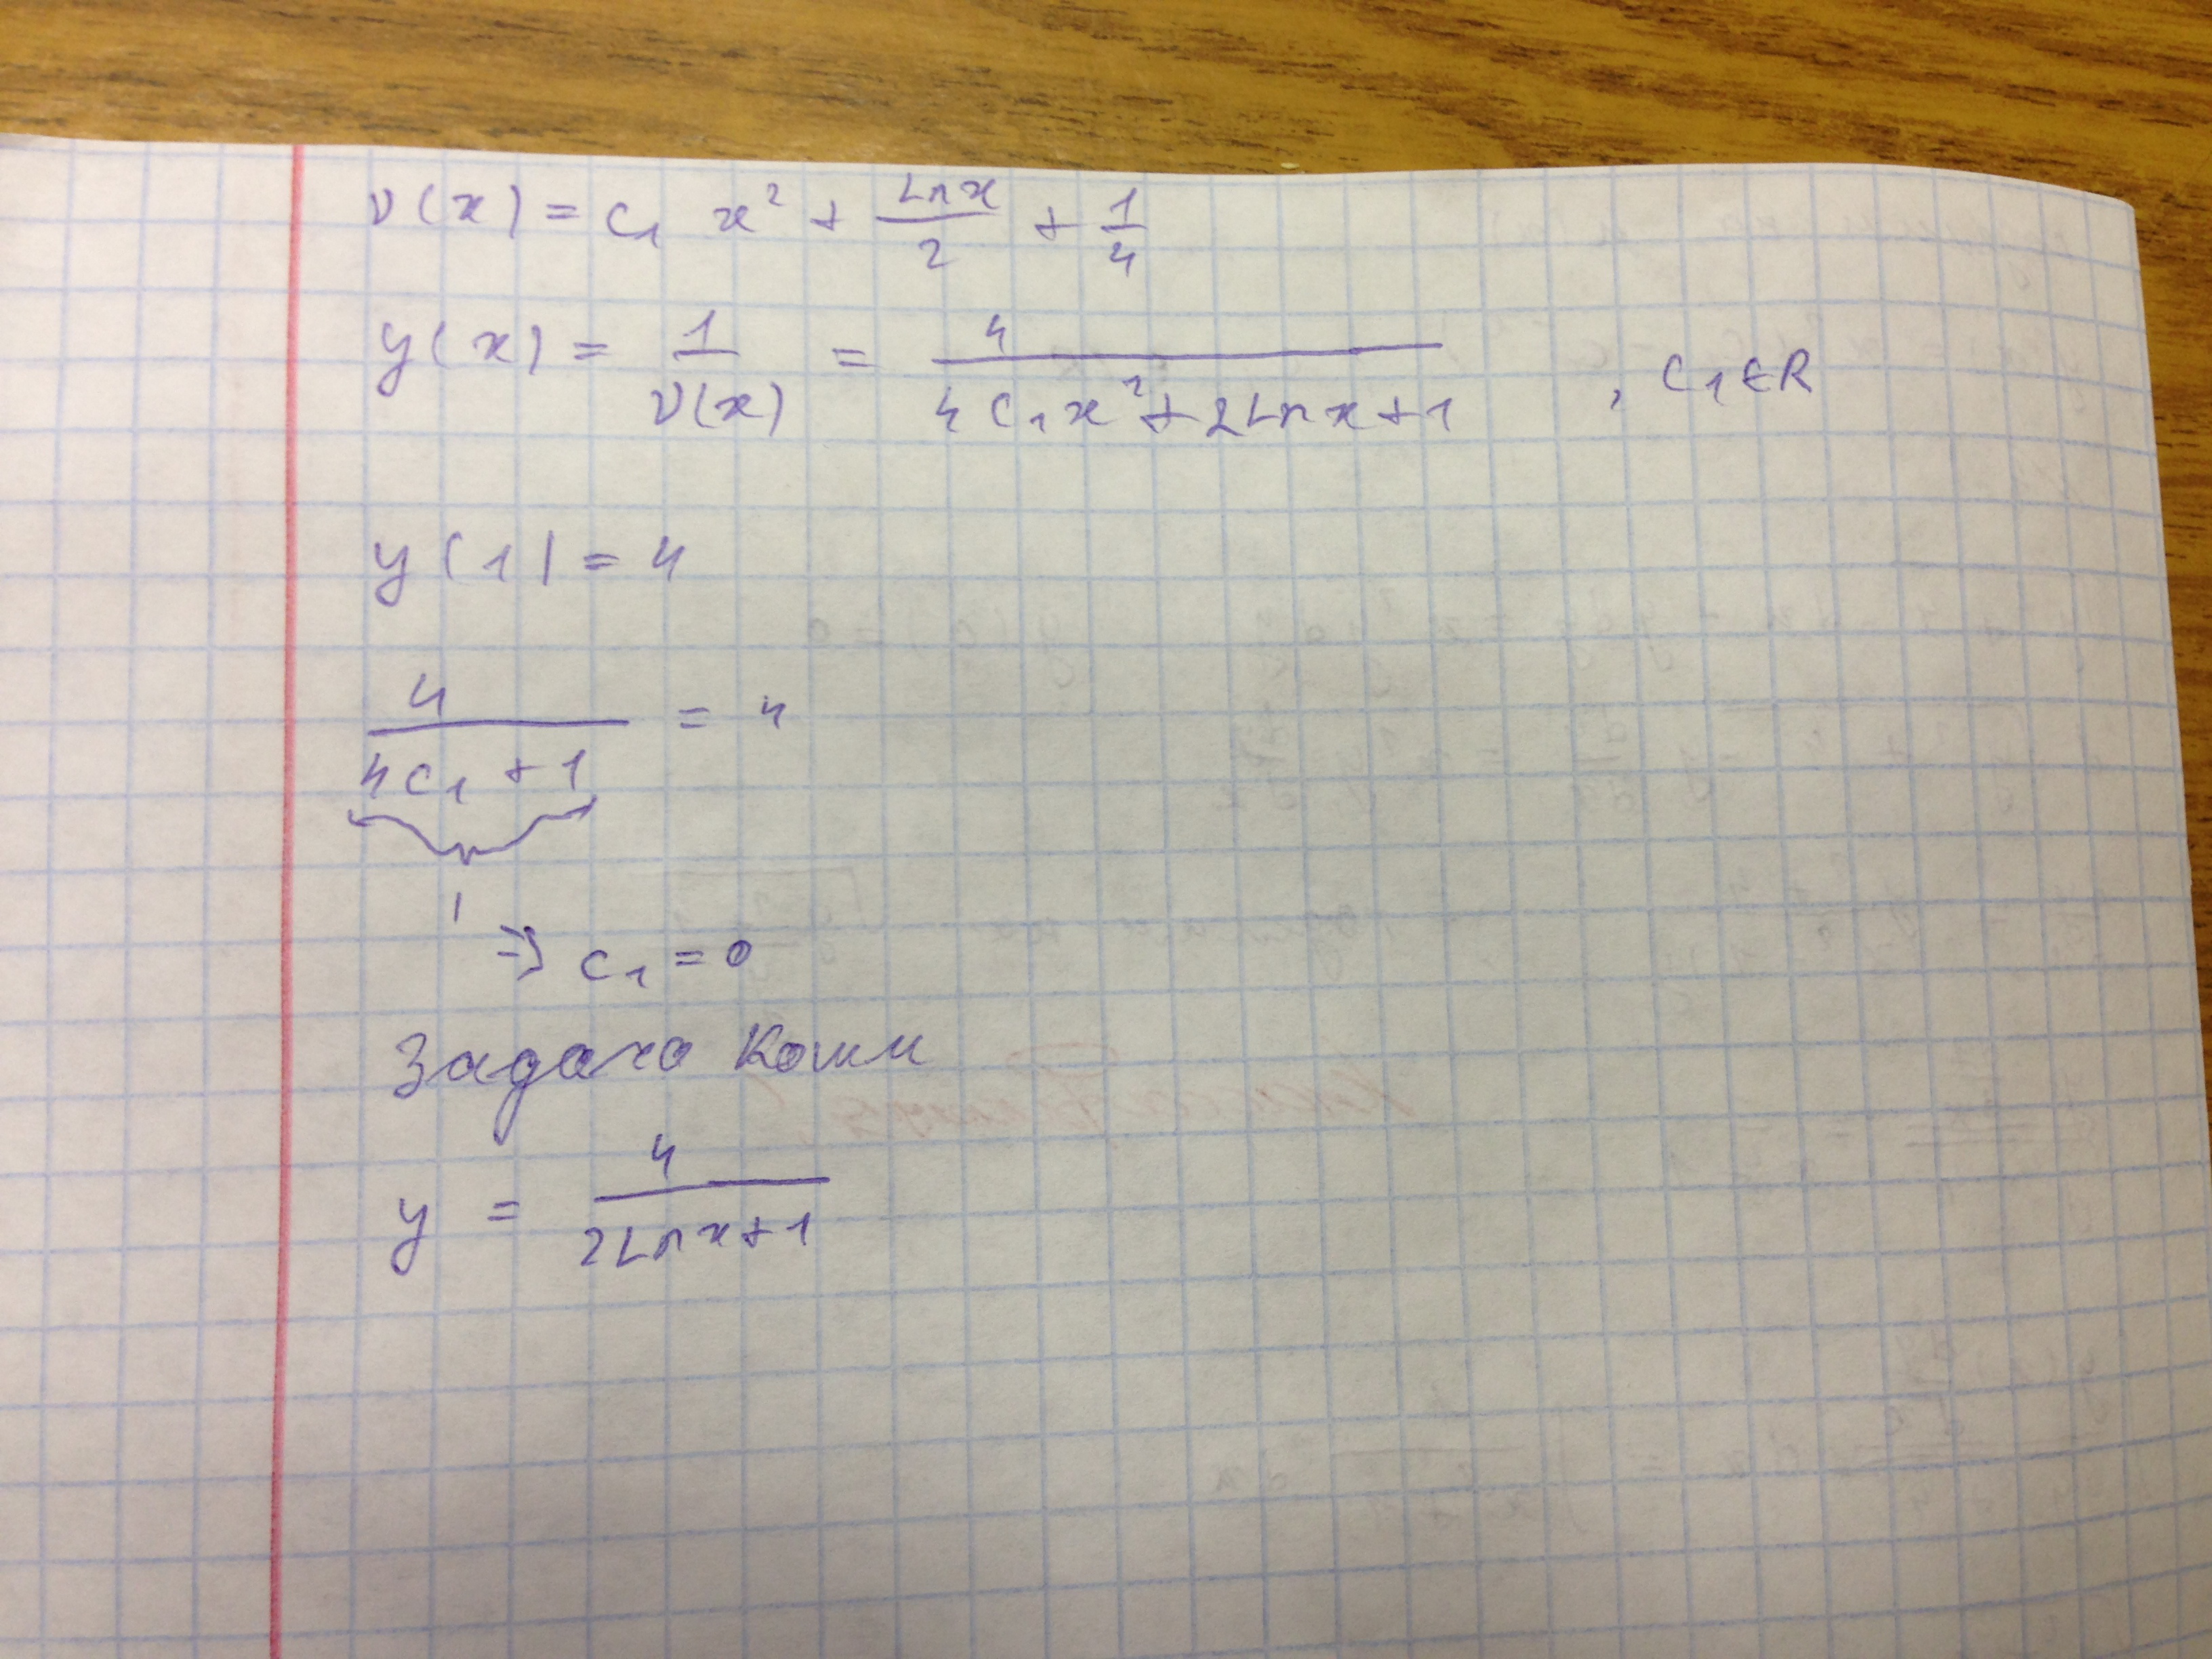 ν(x) = c₁ x² + Lnx/2 + 1/4
y(x) = 1/ν(x) = 4/(4c₁x² + 2Lnx + 1) , c₁ ∈ R
y(1) = 4
4/(4c₁ + 1) = 4
1
⇒ c₁ = 0
Задача Коши
y = 4/(2Lnx + 1)